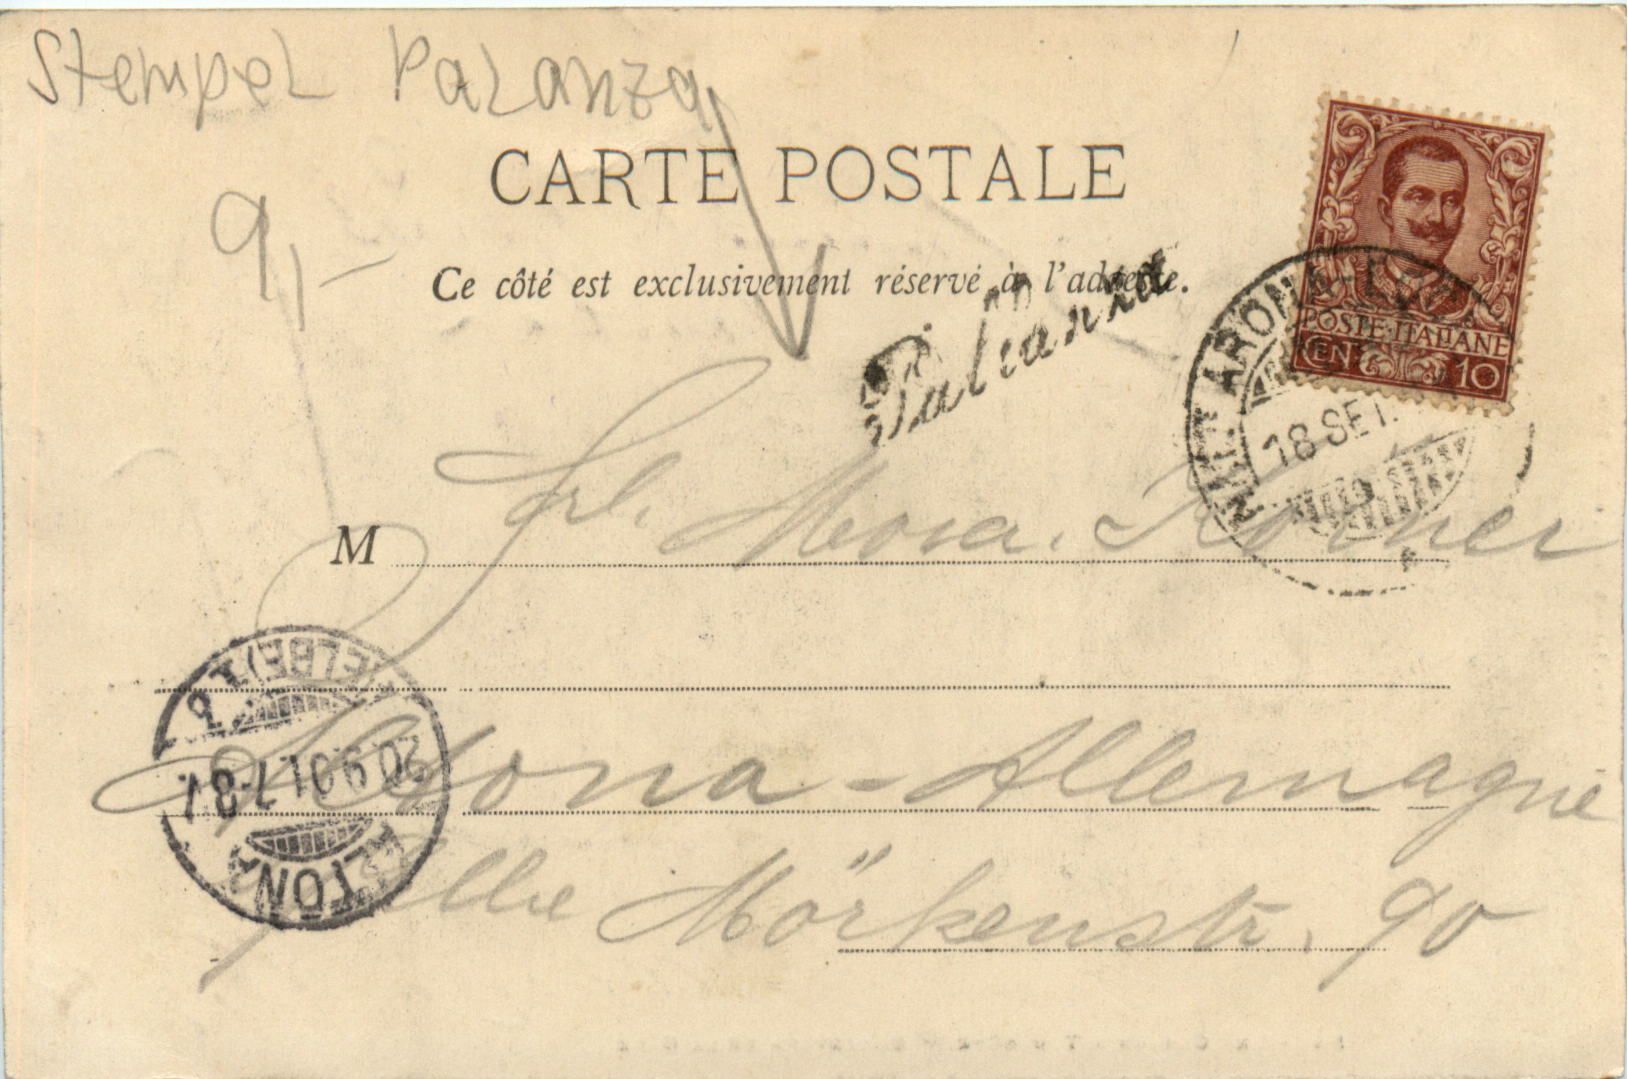 Stempel Palanza
9,-
CARTE POSTALE
Ce côté est exclusivement réservé à l'adresse.
Pallanza
POSTE·ITALIANE
CEN 10
ARONA-LO
18 SET.
M Frl.
(ELBE) 1
20.9.01.7-8V
ALTONA
Altona - Allemagne
Elbe Mörkenstr. 90